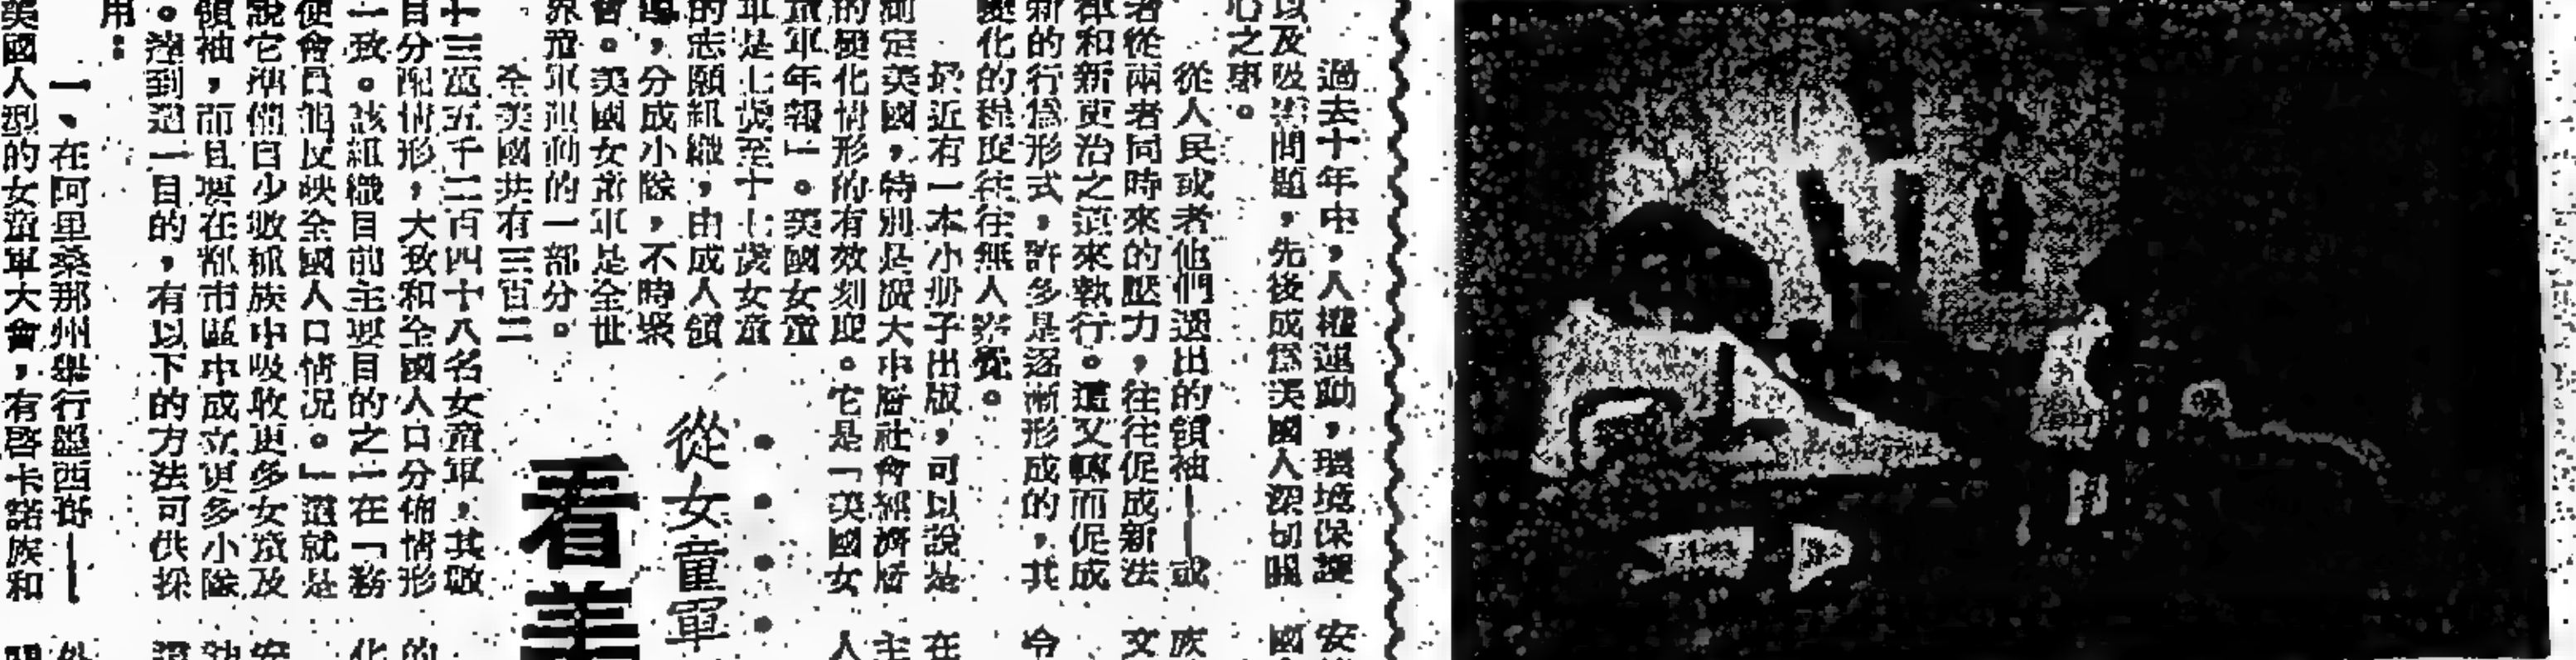 過去十年中，人權運動，環境保護
以及吸毒問題，先後成爲美國人深切關
心之事。
從人民或者他們選出的領袖——或
者從兩者同時來的壓力，往往促成新法
律和新更治之道來執行。這又轉而促成
新的行爲形式，許多是逐漸形成的，其
變化的程度往往無人察覺。
最近有一本小册子出版，可以說是
測定美國，特別是廣大中層社會經濟層
的變化情形的有效刻度。它是「美國女
童軍年報」。美國女童
軍是七歲至十七歲女童
的志願組織，由成人領
導，分成小隊，不時聚
會。美國女童軍是全世
界童軍運動的一部分。
全美國共有三百二
十三萬五千二百四十八名女童軍，其數
目分配情形，大致和全國人口分佈情形
一致。該組織目前主要目的之一在「務
使會員能反映全國人口情况。」這就是
說它準備自少數氓族中吸收更多女童及
領袖，而且要在都市區中成立更多小隊
。達到這一目的，有以下的方法可供採
用：
一、在阿里桑那州舉行墨西哥——
美國人型的女童軍大會，有啓卡諾族和
從女童軍
看美